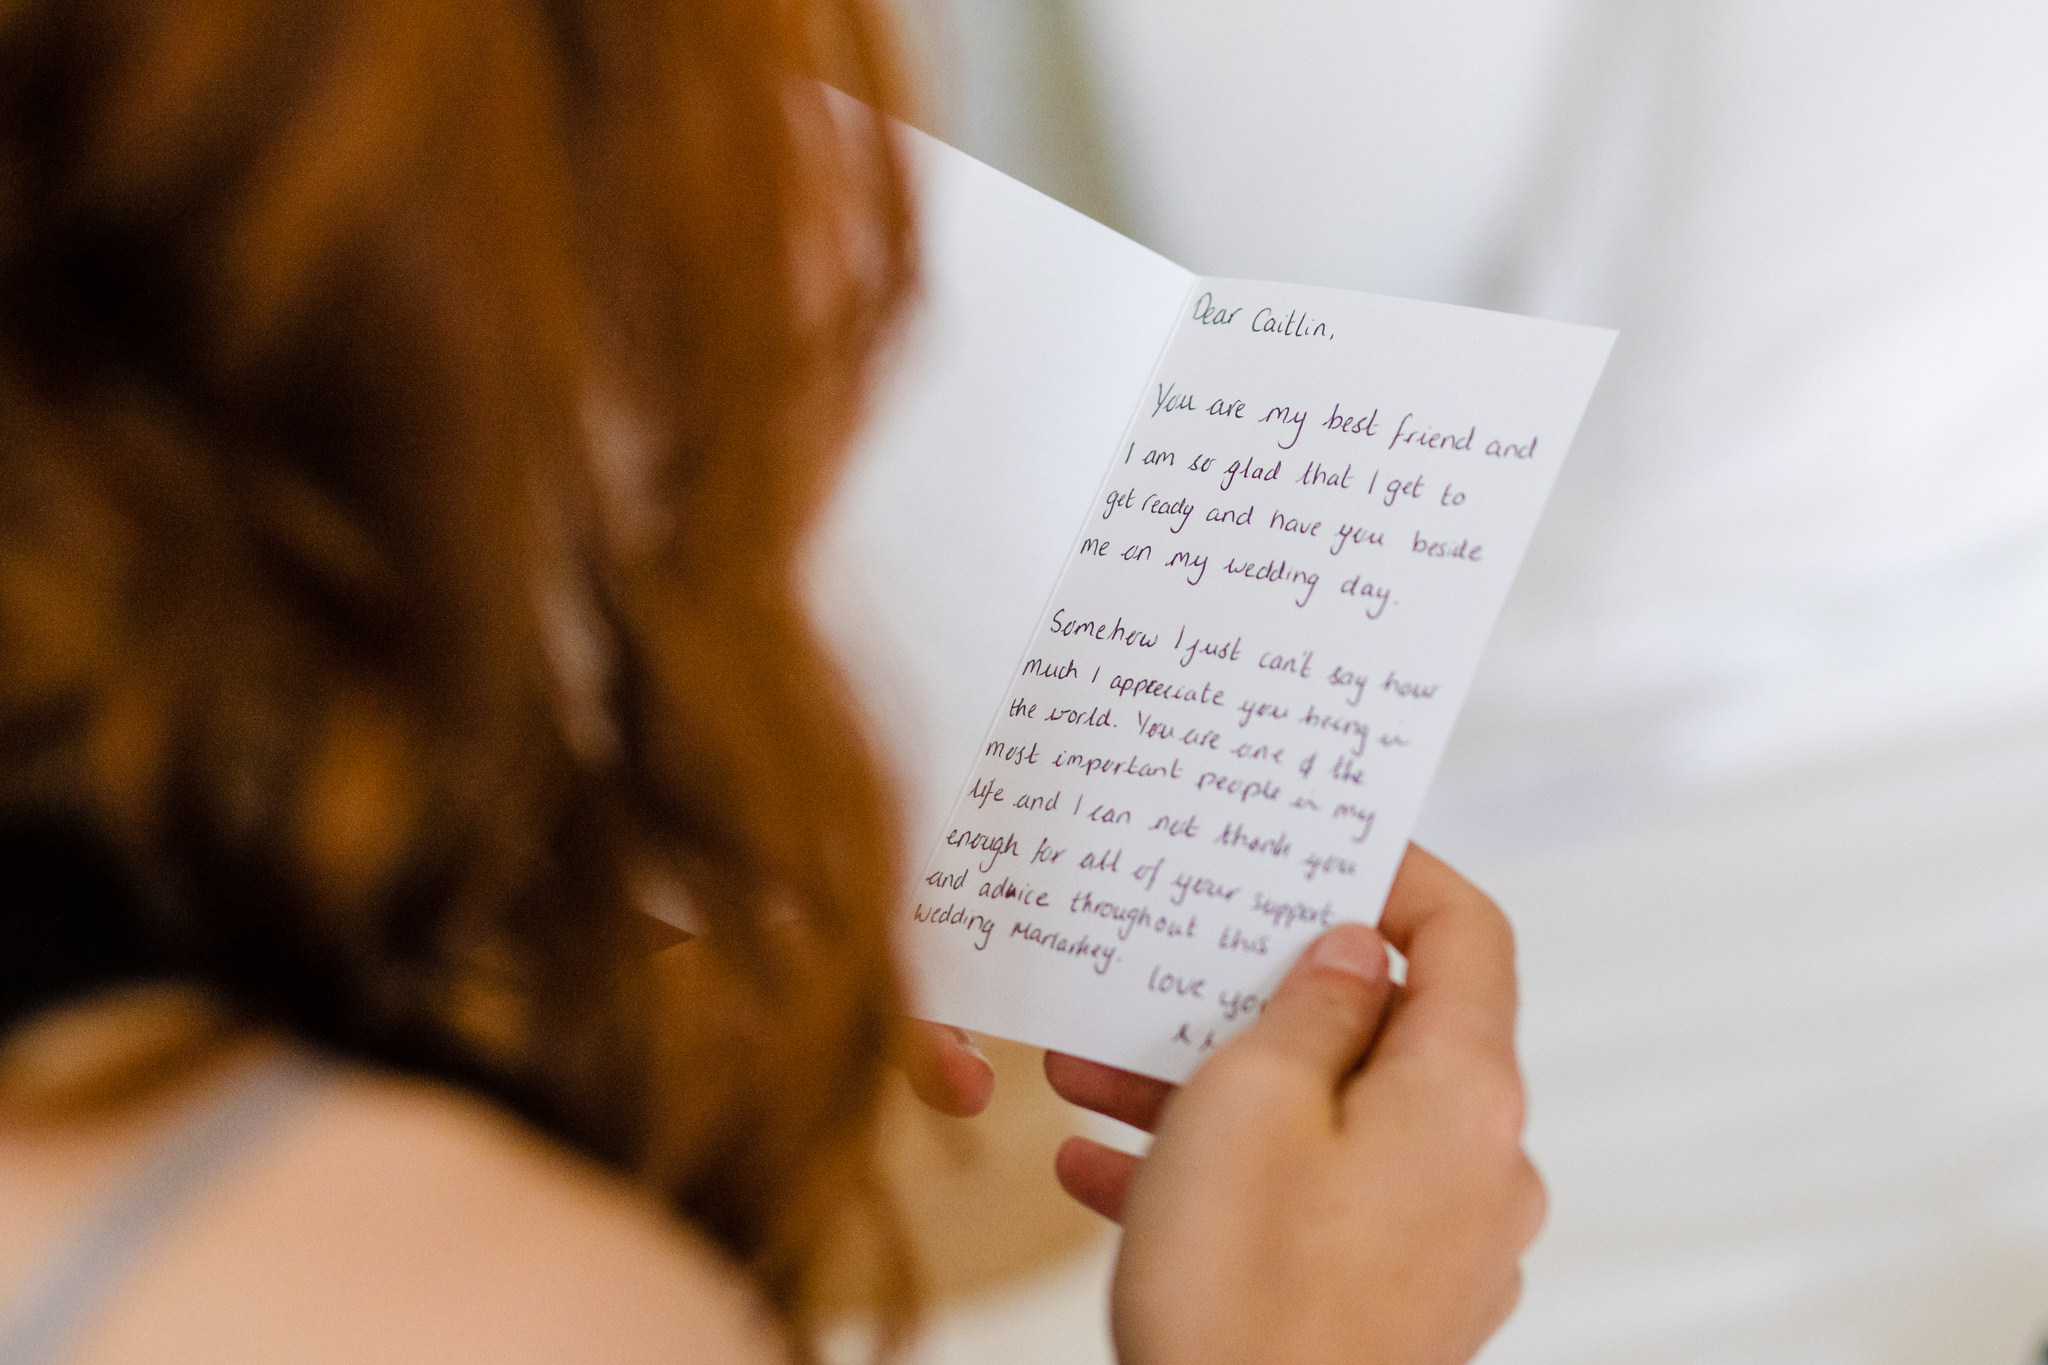 Dear Caitlin,
You are my best friend and
I am so glad that I get to
get ready and have you beside
me on my wedding day.
Somehow I just can't say how
much I appreciate you being in
the world. You are one of the
most important people in my
life and I can not thank you
enough for all of your support
and advice throughout this
wedding Mariarkey.
love